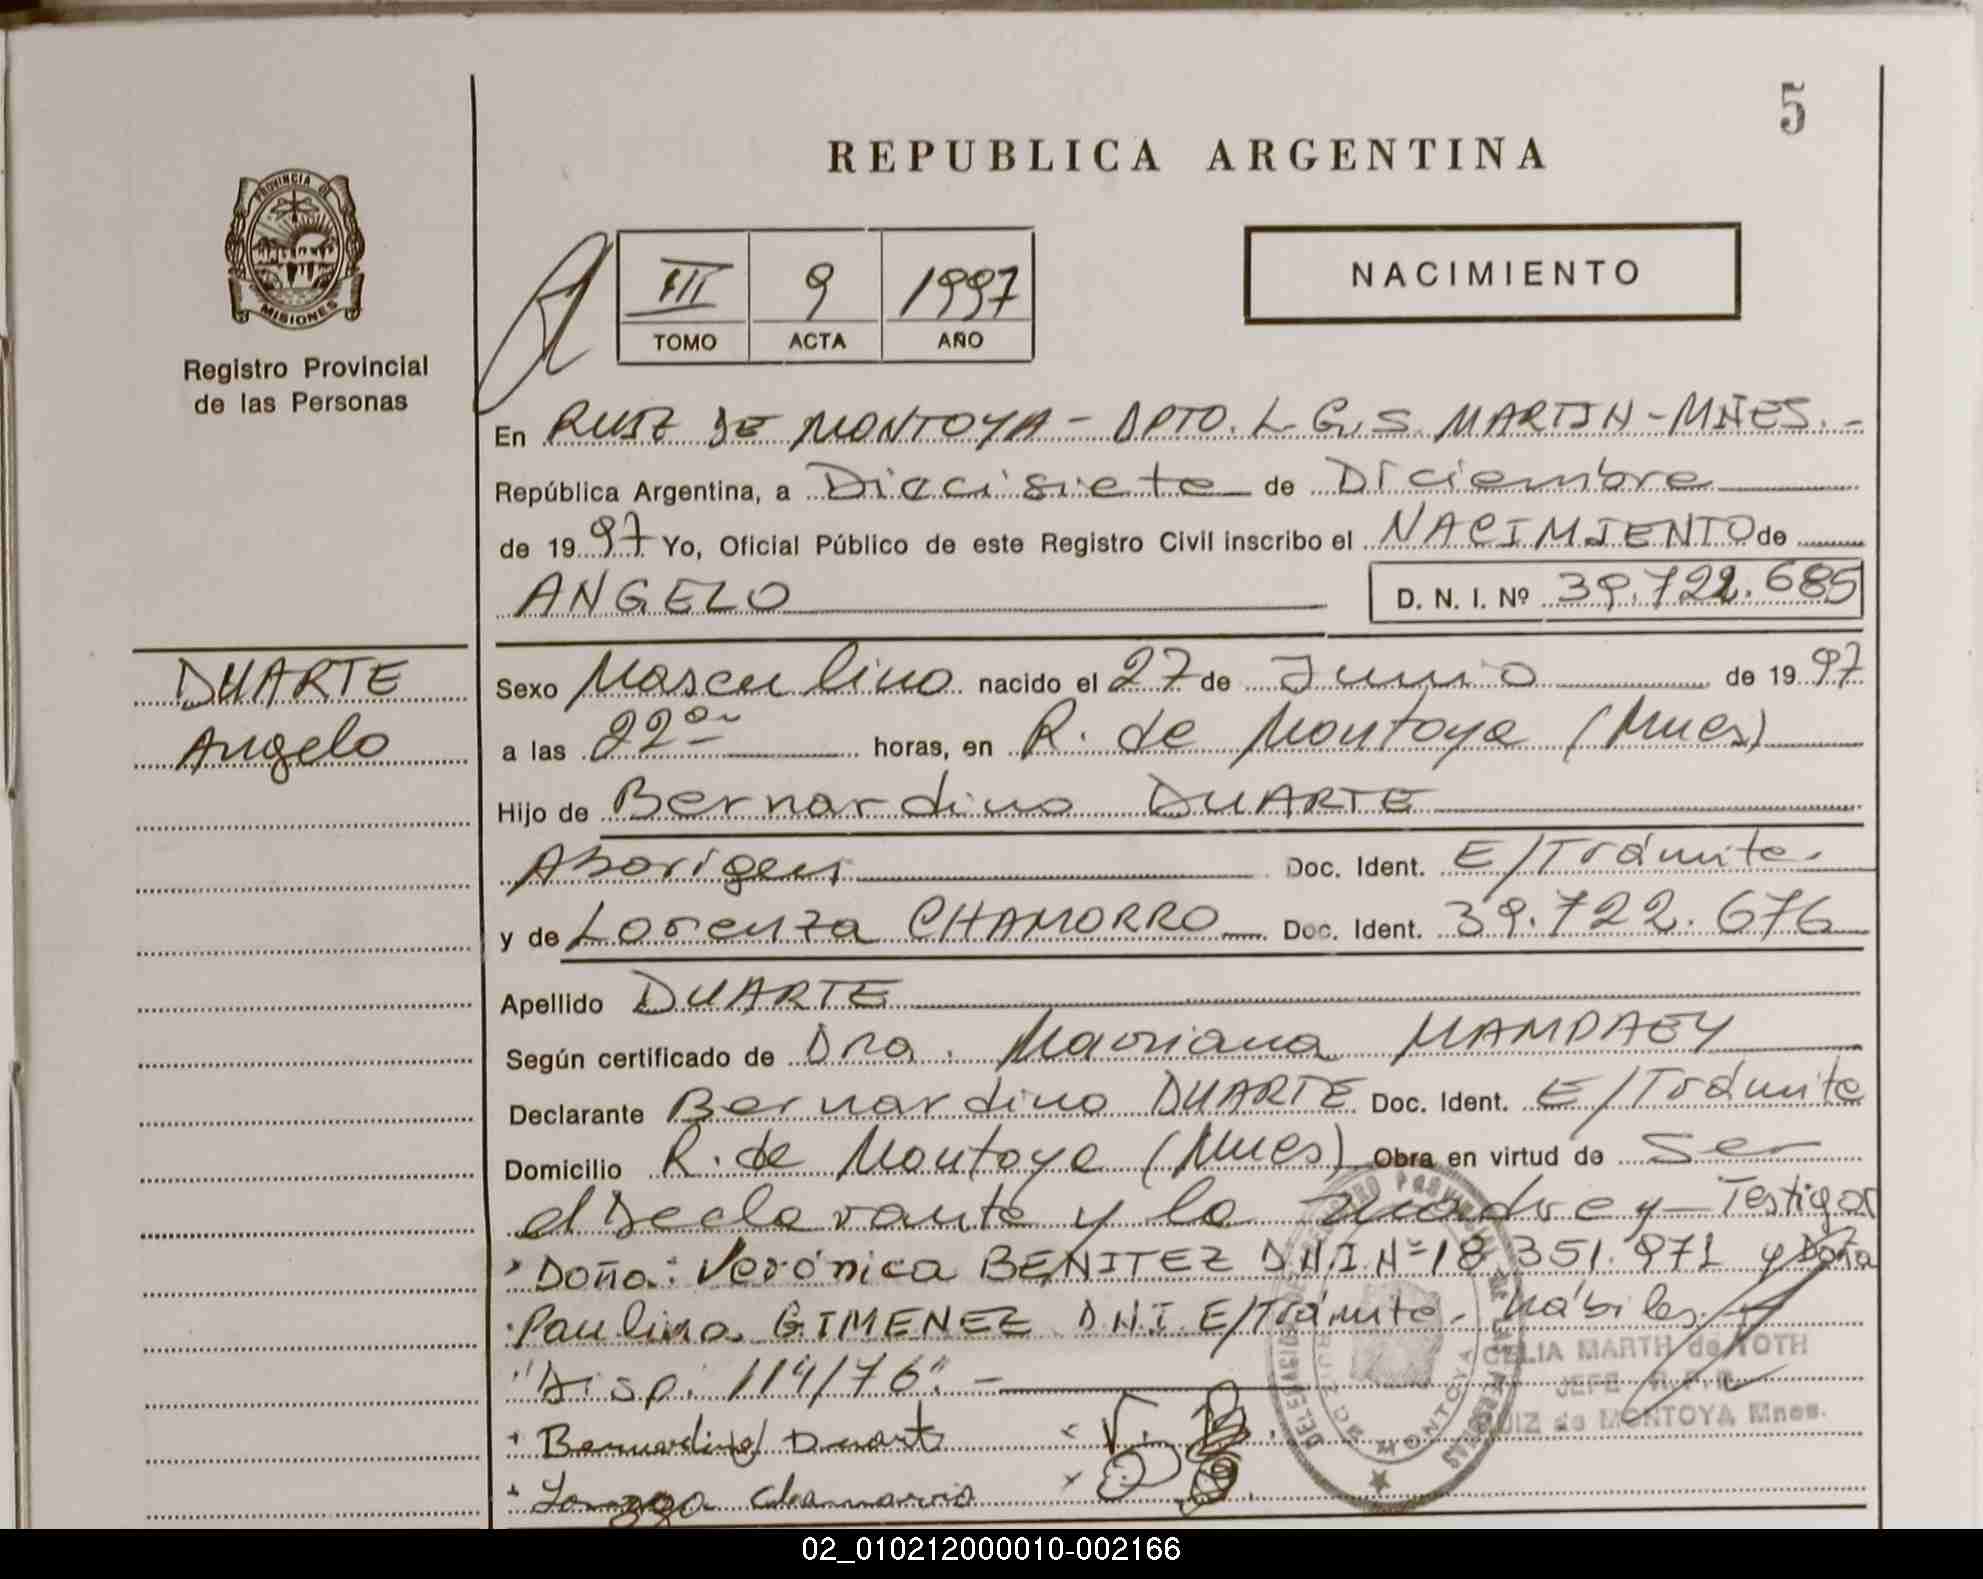 5
REPUBLICA ARGENTINA
PROVINCIA DE
MISIONES
Registro Provincial
de las Personas
III 9 1997
TOMO ACTA AÑO
NACIMIENTO
En RUIZ DE MONTOYA - DPTO. L. G. S. MARTIN - MÑES. -
República Argentina, a Diecisiete de Diciembre
de 1997 Yo, Oficial Público de este Registro Civil inscribo el NACIMIENTO de
ANGELO D. N. I. Nº 39.722.685
DUARTE
Angelo
Sexo Masculino nacido el 27 de Junio de 1997
a las 22 horas, en R. de Montoya (Mnes)
Hijo de Bernardino DUARTE
Aborigen Doc. Ident. E/Trámite.
y de Lorenza CHAMORRO Doc. Ident. 39.722.676
Apellido DUARTE
Según certificado de Dra. Mariana MAMPAEY
Declarante Bernardino DUARTE Doc. Ident. E/Trámite
Domicilio R. de Montoya (Mnes) Obra en virtud de Ser
el Declarante y la madre y - Testigos
Doña: Verónica BENITEZ D.N.I. Nº 18.351.971 y Doña
Paulina GIMENEZ D.N.I. E/Trámite. hábiles
"Disp. 114/76". -
CELIA MARTH de TOTH
JEFE R.P.P.
RUIZ de MONTOYA Mnes.
Bernardino Duarte
chamorro
02_010212000010-002166